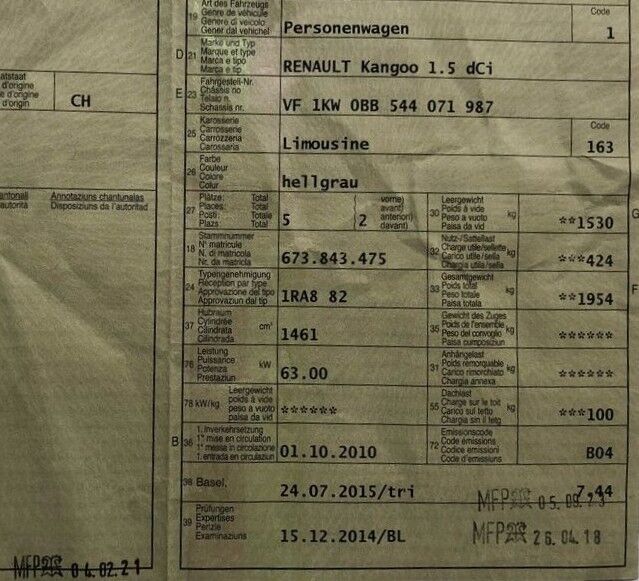 Art des Fahrzeugs
19 Genre de véhicule
Genere di veicolo
Gener dal vehichel
Personenwagen
Code
1
D 21 Marke und Typ
Marque et type
Marca e tipo
Marca e tip
RENAULT Kangoo 1.5 dCi
atstaat
d'origine
e d'origine
d'origin
CH
E 23 Fahrgestell-Nr.
Châssis no
Telaio n.
Schassis nr.
VF 1KW 0BB 544 071 987
25 Karosserie
Carrosserie
Carrozzeria
Carossaria
Limousine
Code
163
26 Farbe
Couleur
Colore
Colur
hellgrau
antonali
autorità
Annotaziuns chantunalas
Disposiziuns da l'autoritad
27 Plätze: Total
Places: Total
Posti: Totale
Plazs: Total
5
vorne)
avant)
anteriori)
davant)
2
30 Leergewicht
Poids à vide
Peso a vuoto
Paisa da vid
kg
**1530
G
18 Stammnummer
N° matricule
N. di matricola
Nr. da matricla
673.843.475
32 Nutz-/Sattellast
Charge utile/sellette
Carico utile/sella
Chargia utila/sella
kg
***424
24 Typengenehmigung
Réception par type
Approvazione del tipo
Approvaziun dal tip
1RA8 82
33 Gesamtgewicht
Poids total
Peso totale
Paisa totala
kg
**1954
F
37 Hubraum
Cylindrée
Cilindrata
Cilindrada
cm³
1461
35 Gewicht des Zuges
Poids de l'ensemble
Peso del convoglio
Paisa cumposiziun
kg
******
76 Leistung
Puissance
Potenza
Prestaziun
kW
63.00
31 Anhängelast
Poids remorquable
Carico rimorchiato
Chargia annexa
kg
******
78 kW/kg
Leergewicht
poids à vide
peso a vuoto
paisa da vid
******
55 Dachlast
Charge sur le toit
Carico sul tetto
Chargia sin il tetg
kg
***100
B 36 1. Inverkehrsetzung
1re mise en circulation
1a messa in circolazione
1. entrada en circulaziun
01.10.2010
72 Emissionscode
Code émissions
Codice emissioni
Code d'emissiuns
B04
38 Basel,
24.07.2015/tri
7.44
MFP
39 Prüfungen
Expertises
Perizie
Examinaziuns
15.12.2014/BL
MFP 26.04.18
MFP 04.02.21